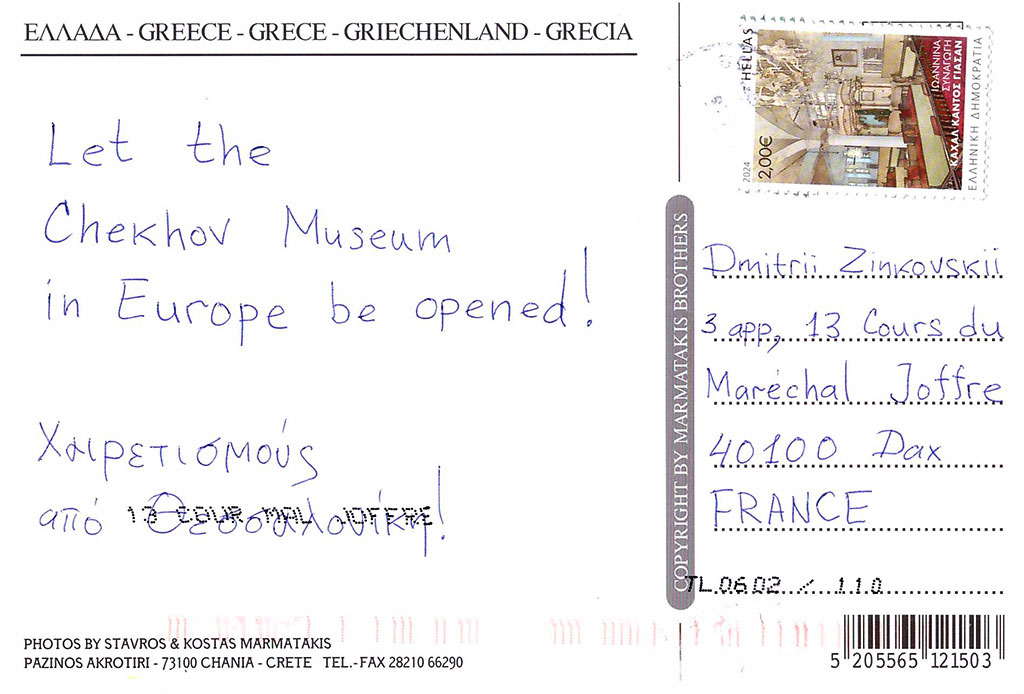 ΕΛΛΑΔΑ - GREECE - GRECE - GRIECHENLAND - GRECIA
Let the
Chekhov Museum
in Europe be opened!
Χαιρετισμούς
από Θεσσαλονίκη!
13 COUR MAL JOFFRE
PHOTOS BY STAVROS & KOSTAS MARMATAKIS
PAZINOS AKROTIRI - 73100 CHANIA - CRETE TEL.-FAX 28210 66290
COPYRIGHT BY MARMATAKIS BROTHERS
HELLAS
2024
2,00€
ΙΩΑΝΝΙΝΑ
ΣΥΝΑΓΩΓΗ
ΚΑΧΑΛ ΚΑΝΤΟΣ ΓΙΑΣΑΝ
ΕΛΛΗΝΙΚΗ ΔΗΜΟΚΡΑΤΙΑ
Dmitrii Zinkovskii
3 app, 13 Cours du
Maréchal Joffre
40100 Dax
FRANCE
TL 0602 / 110
5 205565 121503